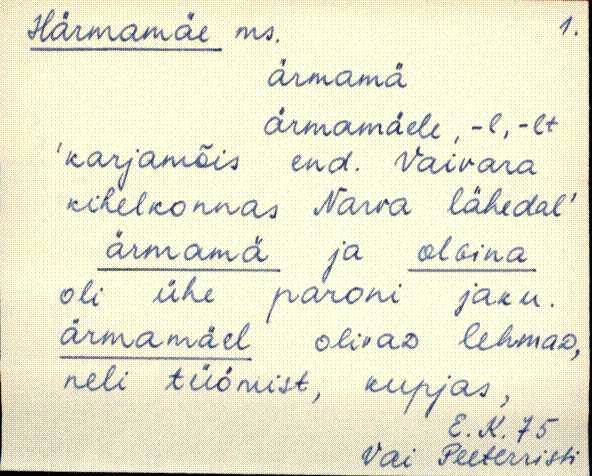 Härmamäe ms. 1.
ärmamä
ärmamäele, -l, -lt
'karjamõis end. Vaivara
kihelkonnas Narva lähedal'
ärmamä ja olGina
oli ühe paroni jaku.
ärmamäel olivaD lehmaD,
neli tüömist, kupjas,
E. K. 75
Vai Peeterristi